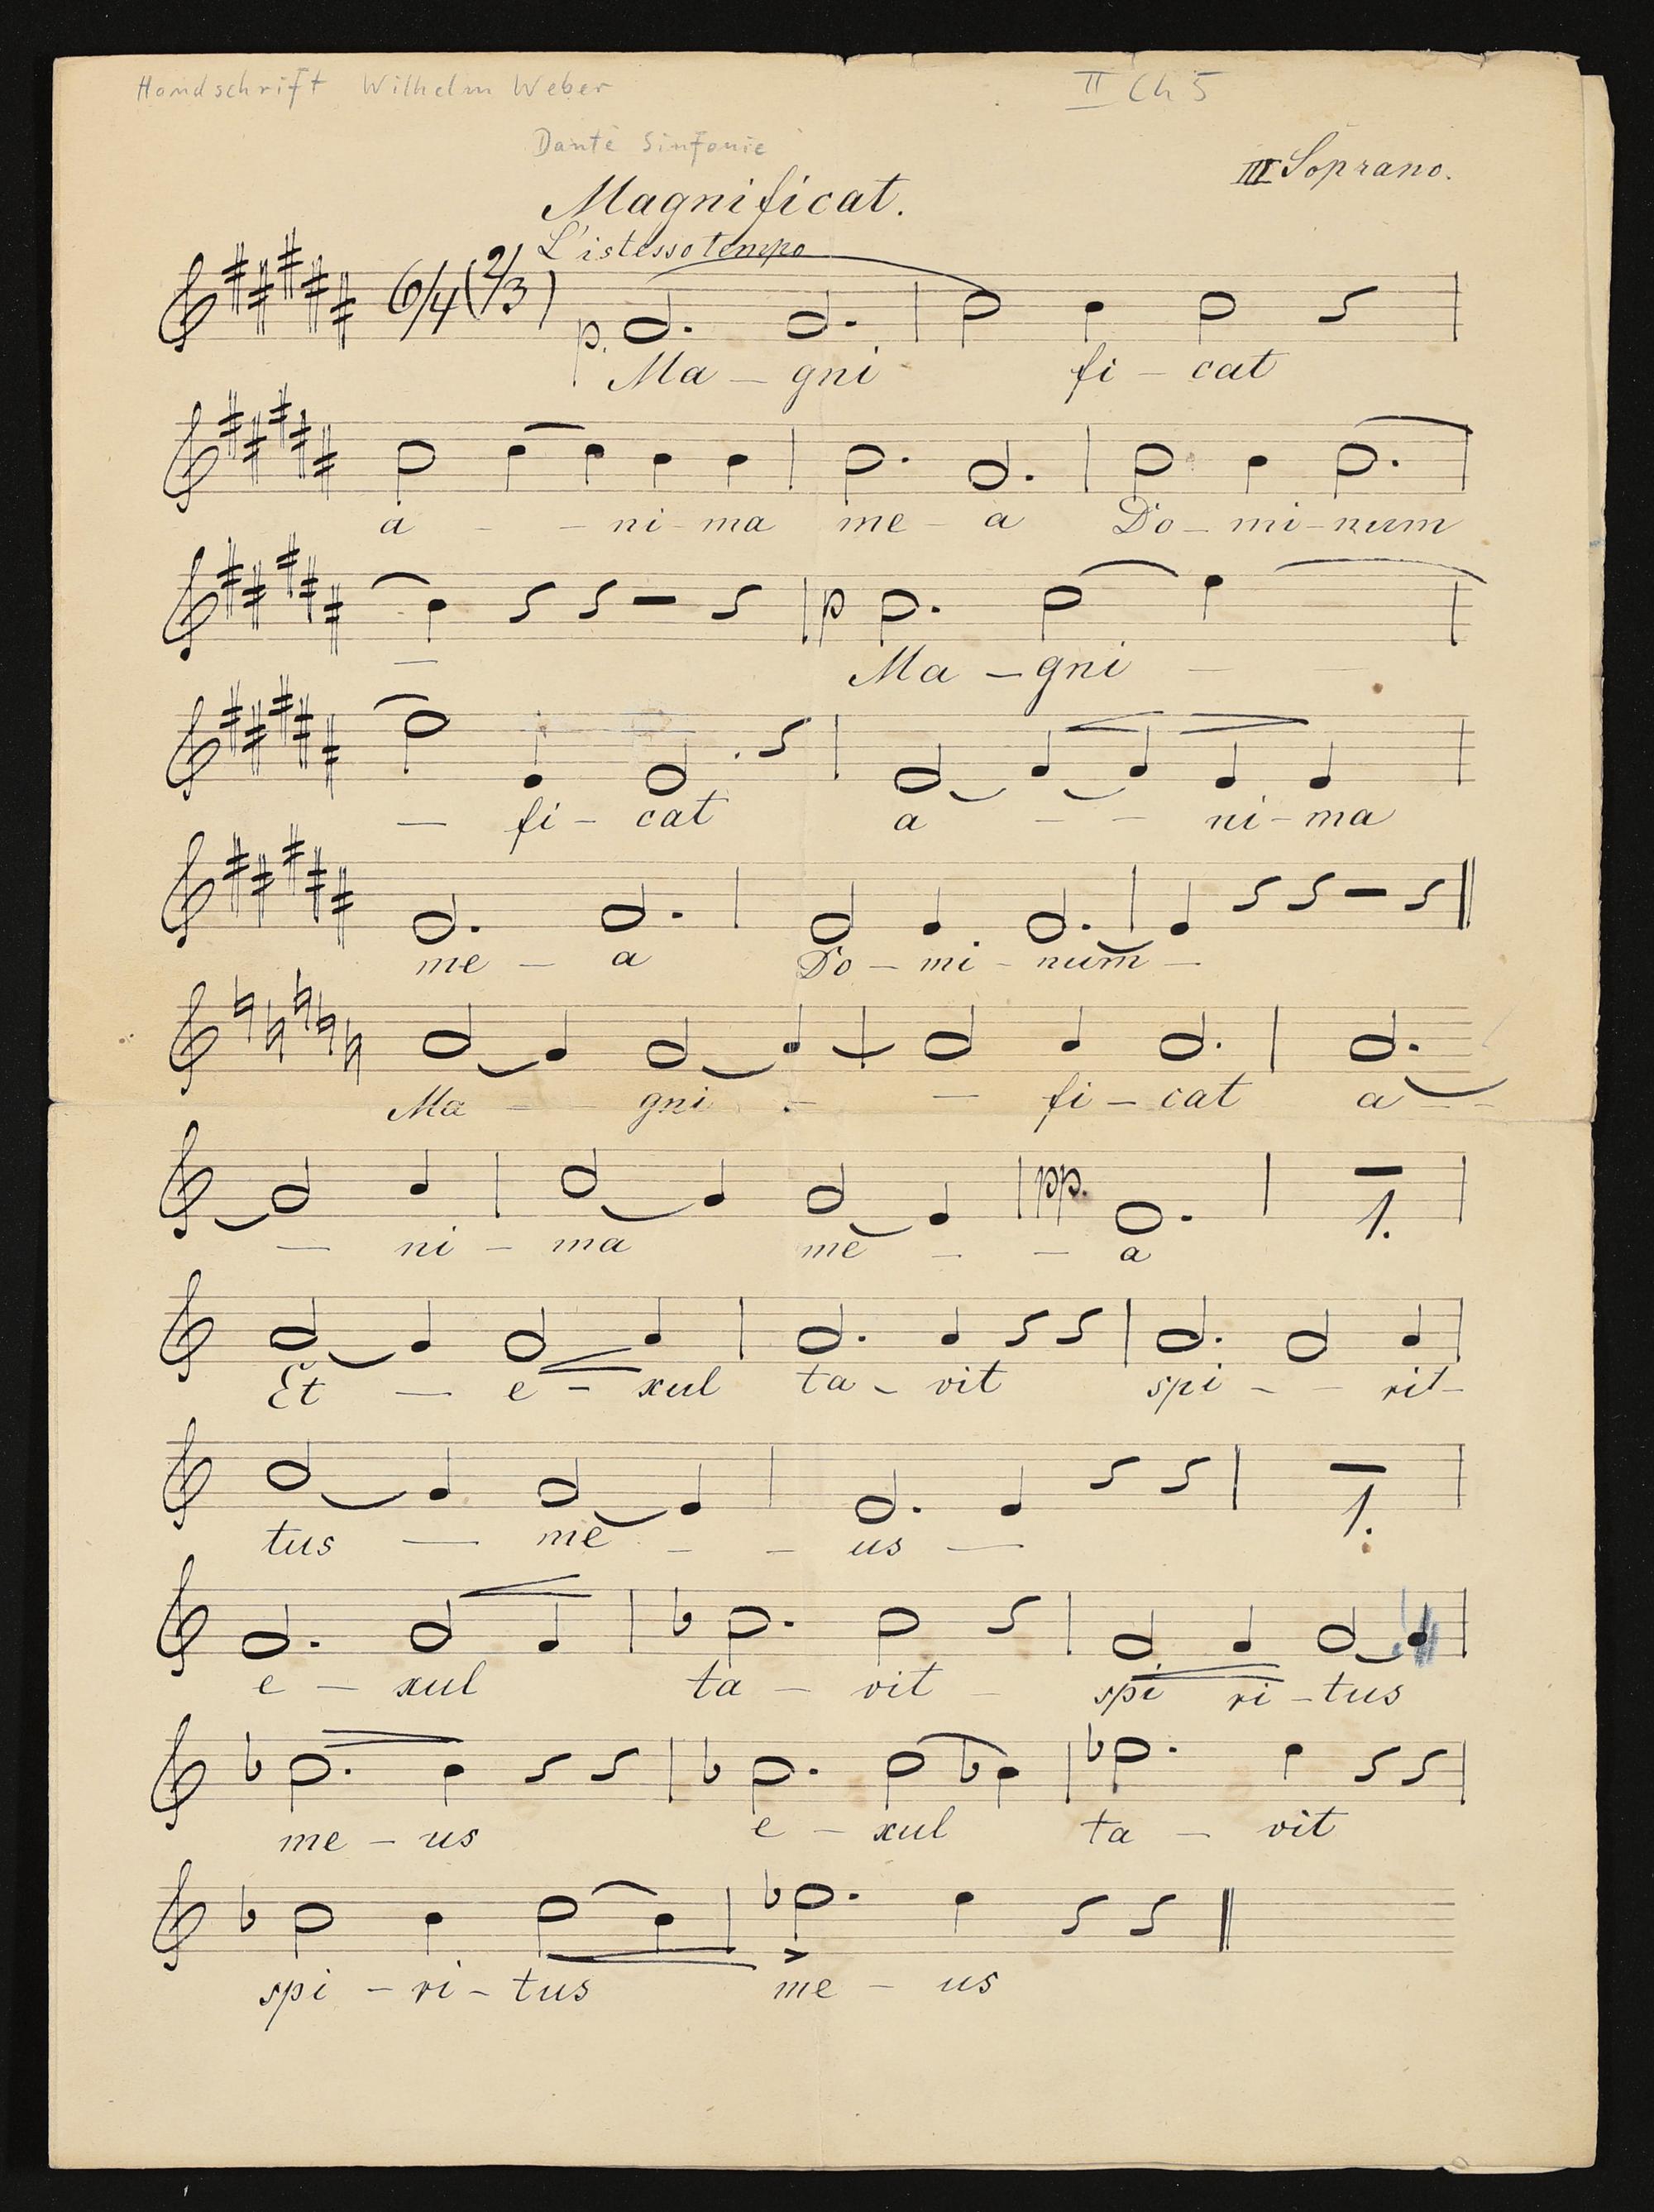 Handschrift Wilhelm Weber II Ch 5
Dante Sinfonie
III Soprano.
Magnificat.
L'istesso tempo
6/4 (2/3)
p.
Ma - gni fi - cat
a - - ni - ma me - a Do - mi - num
p
— Ma - gni - -
— fi - cat a - - ni - ma
me - a Do - mi - num -
Ma - - gni - - fi - cat a - -
pp.
1.
— ni - ma me - - a
Et — e - xul ta - vit spi - - rit-
1.
tus — me - - us —
e - xul ta - vit - spi ri - tus
me - us e - xul ta - vit
spi - ri - tus me - us